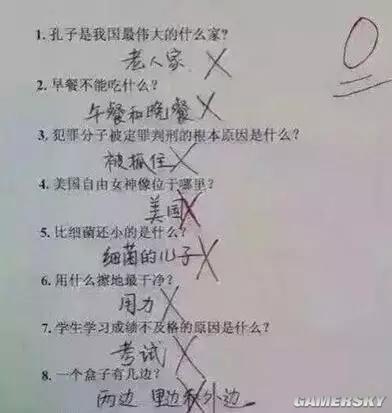 1. 孔子是我国最伟大的什么家?
老人家
2. 早餐不能吃什么?
午餐和晚餐
3. 犯罪分子被定罪判刑的根本原因是什么?
被抓住
4. 美国自由女神像位于哪里?
美国
5. 比细菌还小的是什么?
细菌的儿子
6. 用什么擦地最干净?
用力
7. 学生学习成绩不及格的原因是什么?
考试
8. 一个盒子有几边?
两边 里边和外边
0
GAMERSKY